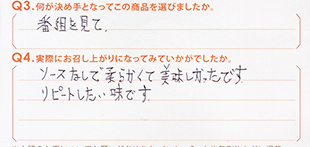 Q3.何が決め手となってこの商品を選びましたか。
番組を見て.
Q4.実際にお召し上がりになってみていかがでしたか。
ソースなしで柔らかくて美味しかったです.
リピートしたい味です.